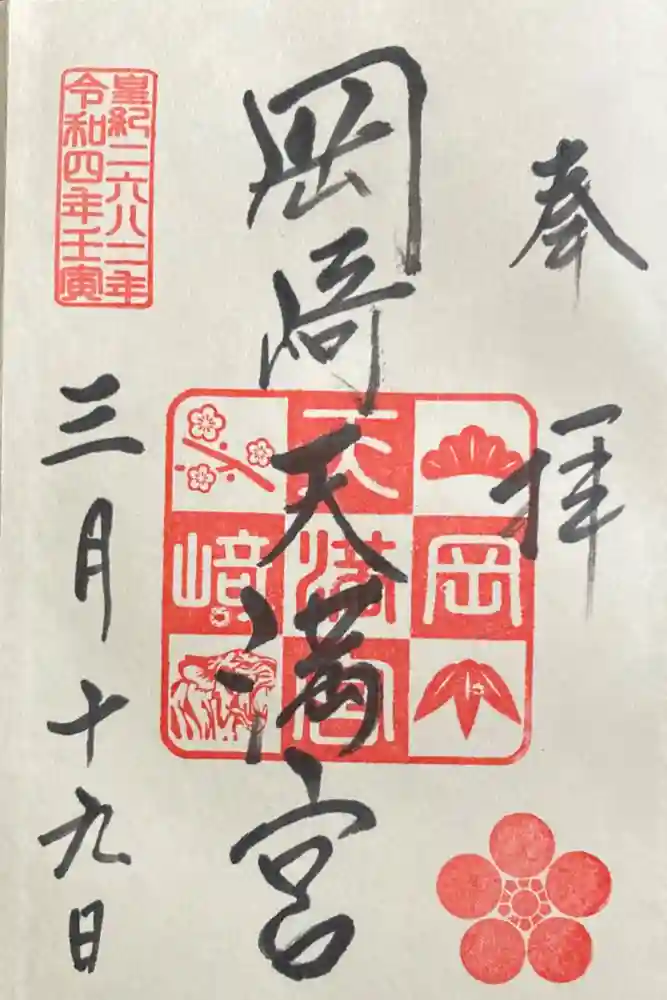 奉拝
岡崎天満宮
岡﨑天満宮
皇紀二六八二年
令和四年壬寅
三月十九日